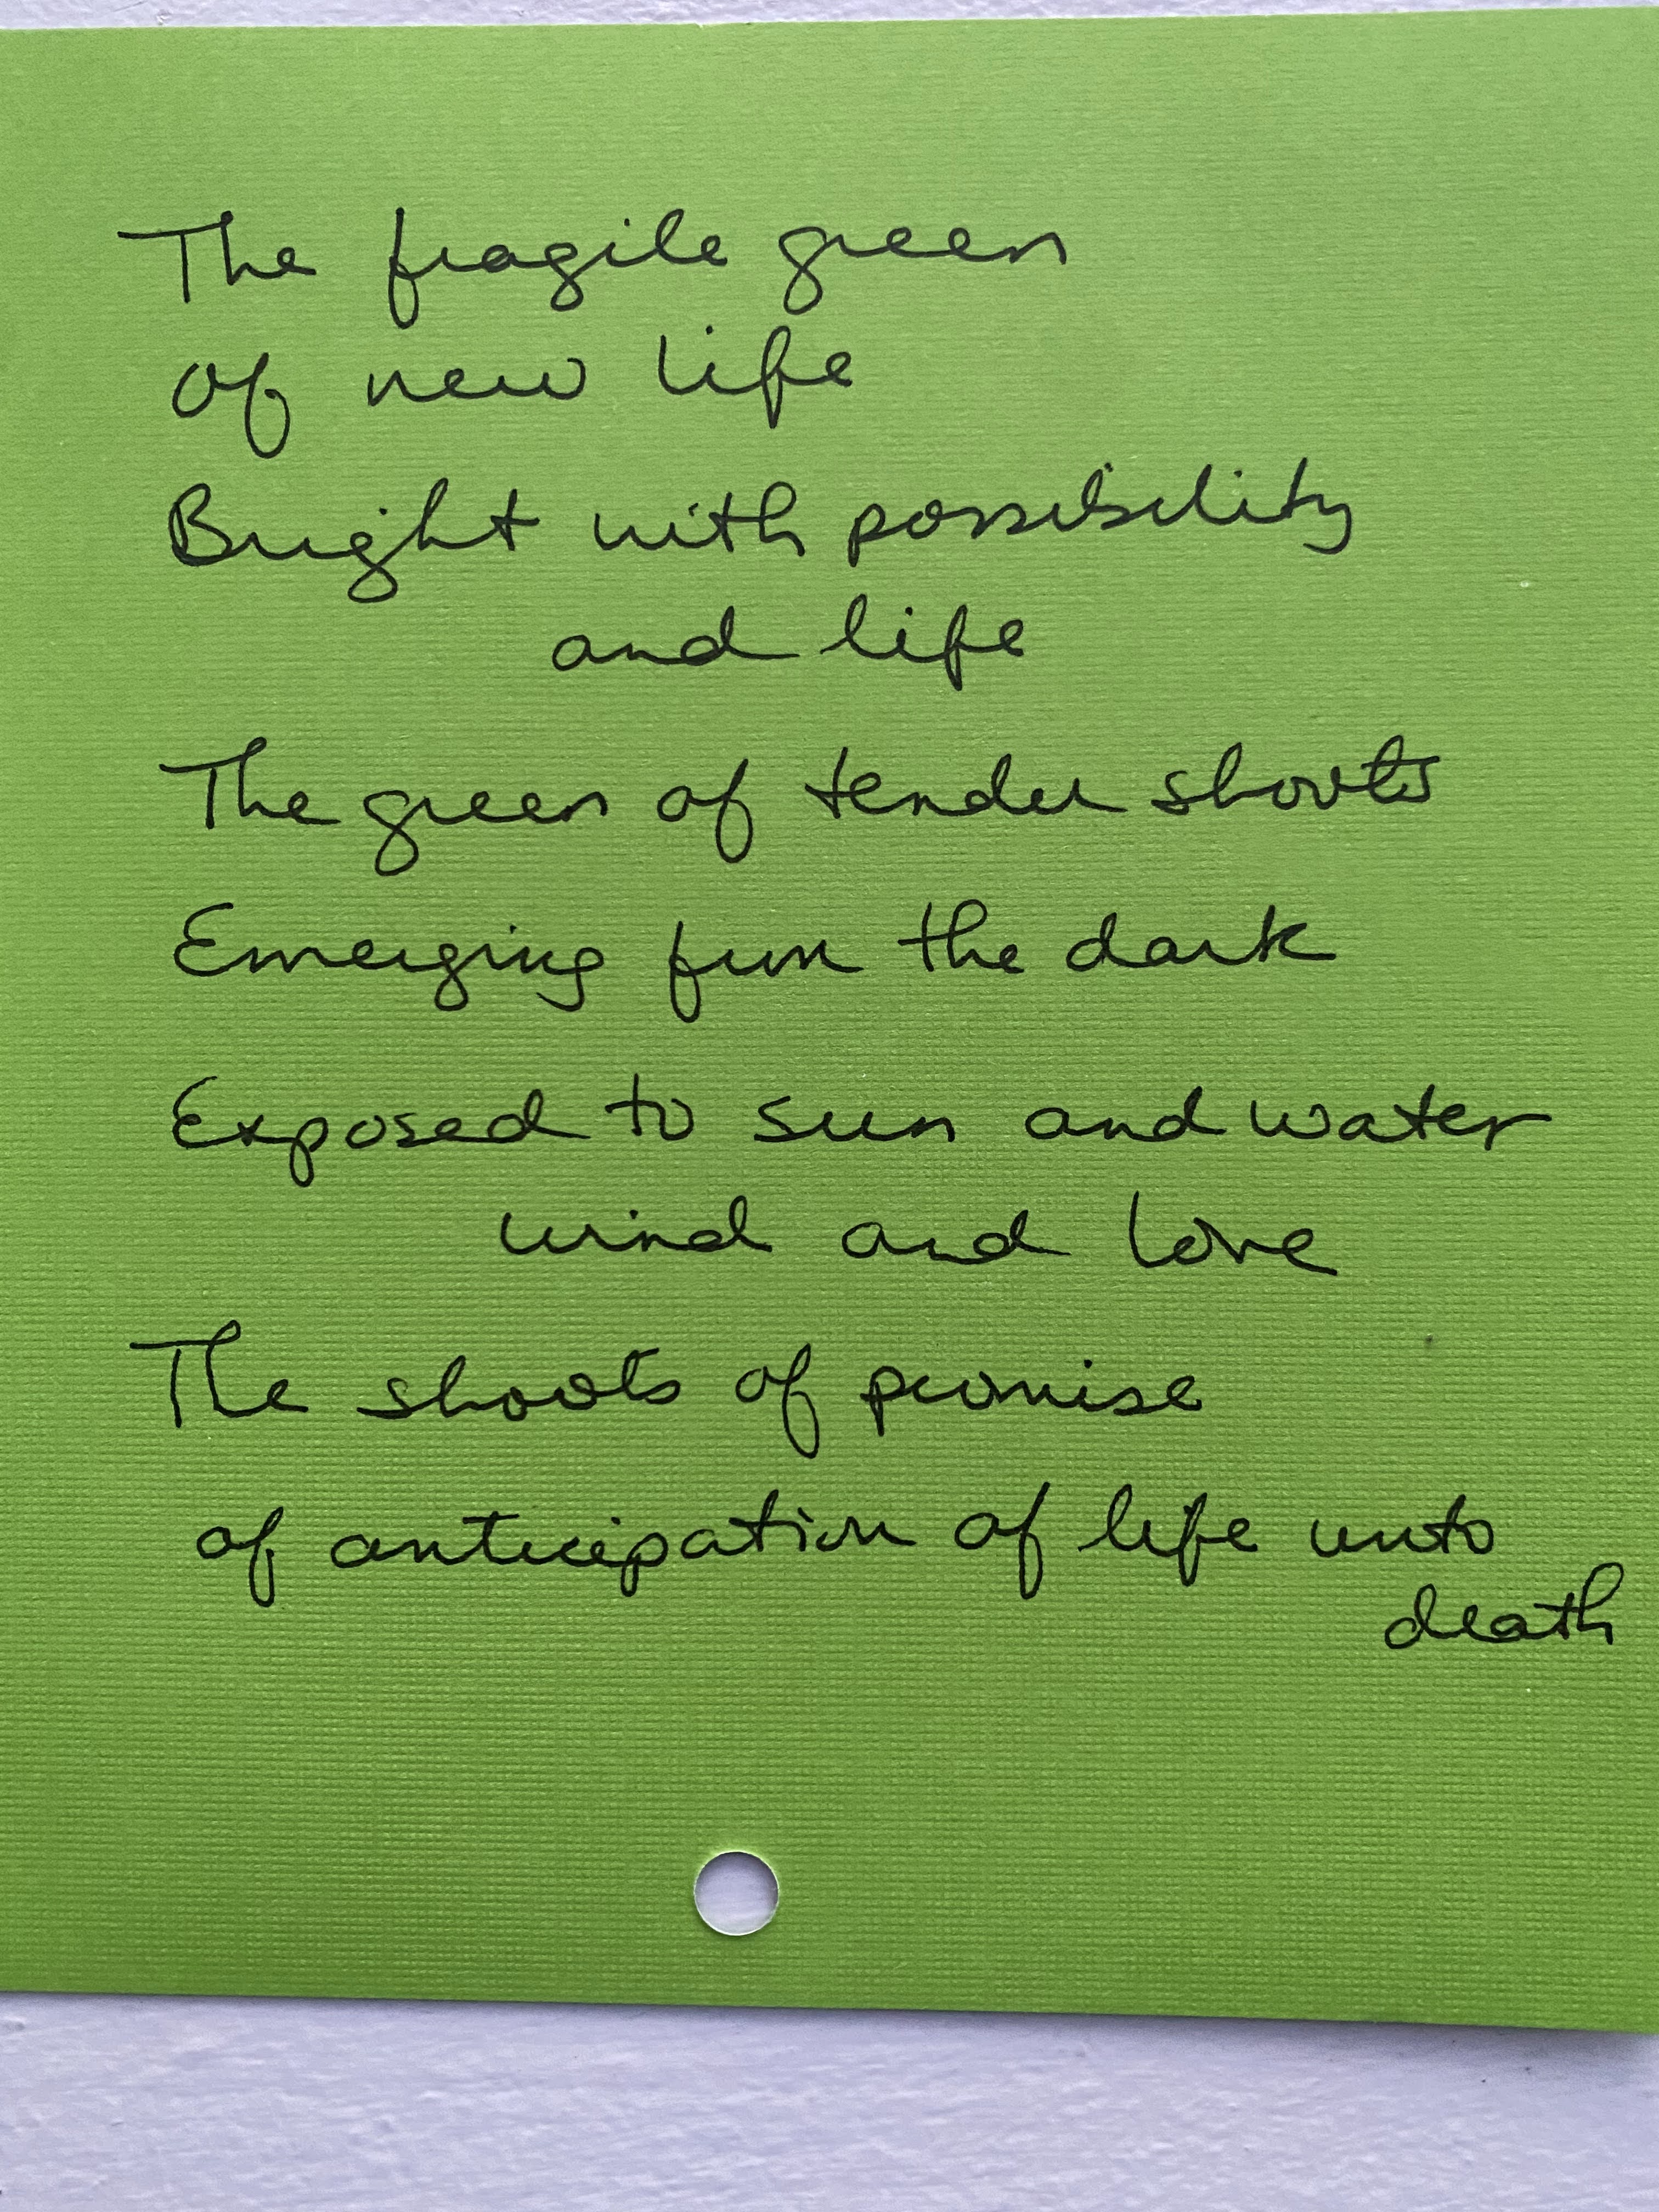 The fragile green
of new life
Bright with possibility
and life
The green of tender shoots
Emerging from the dark
Exposed to sun and water
wind and love
The shoots of promise
of anticipation of life unto
death